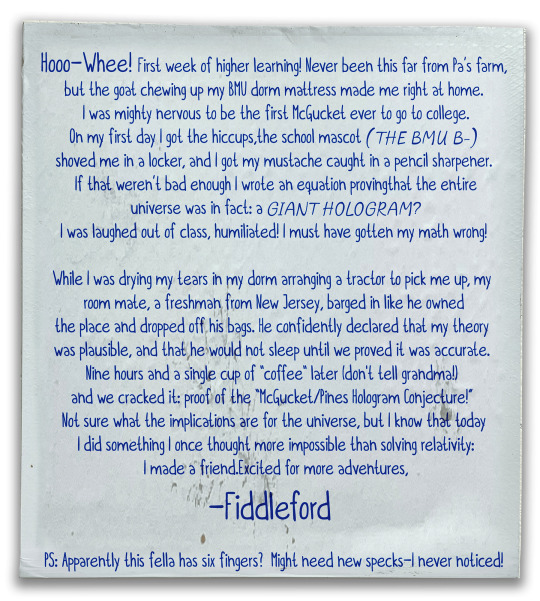 Hooo-Whee! First week of higher learning! Never been this far from Pa's farm,
but the goat chewing up my BMU dorm mattress made me right at home.
I was mighty nervous to be the first McGucket ever to go to college.
On my first day I got the hiccups,the school mascot (THE BMU B-)
shoved me in a locker, and I got my mustache caught in a pencil sharpener.
If that weren't bad enough I wrote an equation provingthat the entire
universe was in fact: a GIANT HOLOGRAM?
I was laughed out of class, humiliated! I must have gotten my math wrong!
While I was drying my tears in my dorm arranging a tractor to pick me up, my
room mate, a freshman from New Jersey, barged in like he owned
the place and dropped off his bags. He confidently declared that my theory
was plausible, and that he would not sleep until we proved it was accurate.
Nine hours and a single cup of "coffee" later (don't tell grandma!)
and we cracked it: proof of the "McGucket/Pines Hologram Conjecture!"
Not sure what the implications are for the universe, but I know that today
I did something I once thought more impossible than solving relativity:
I made a friend.Excited for more adventures,
-Fiddleford
PS: Apparently this fella has six fingers? Might need new specks-I never noticed!